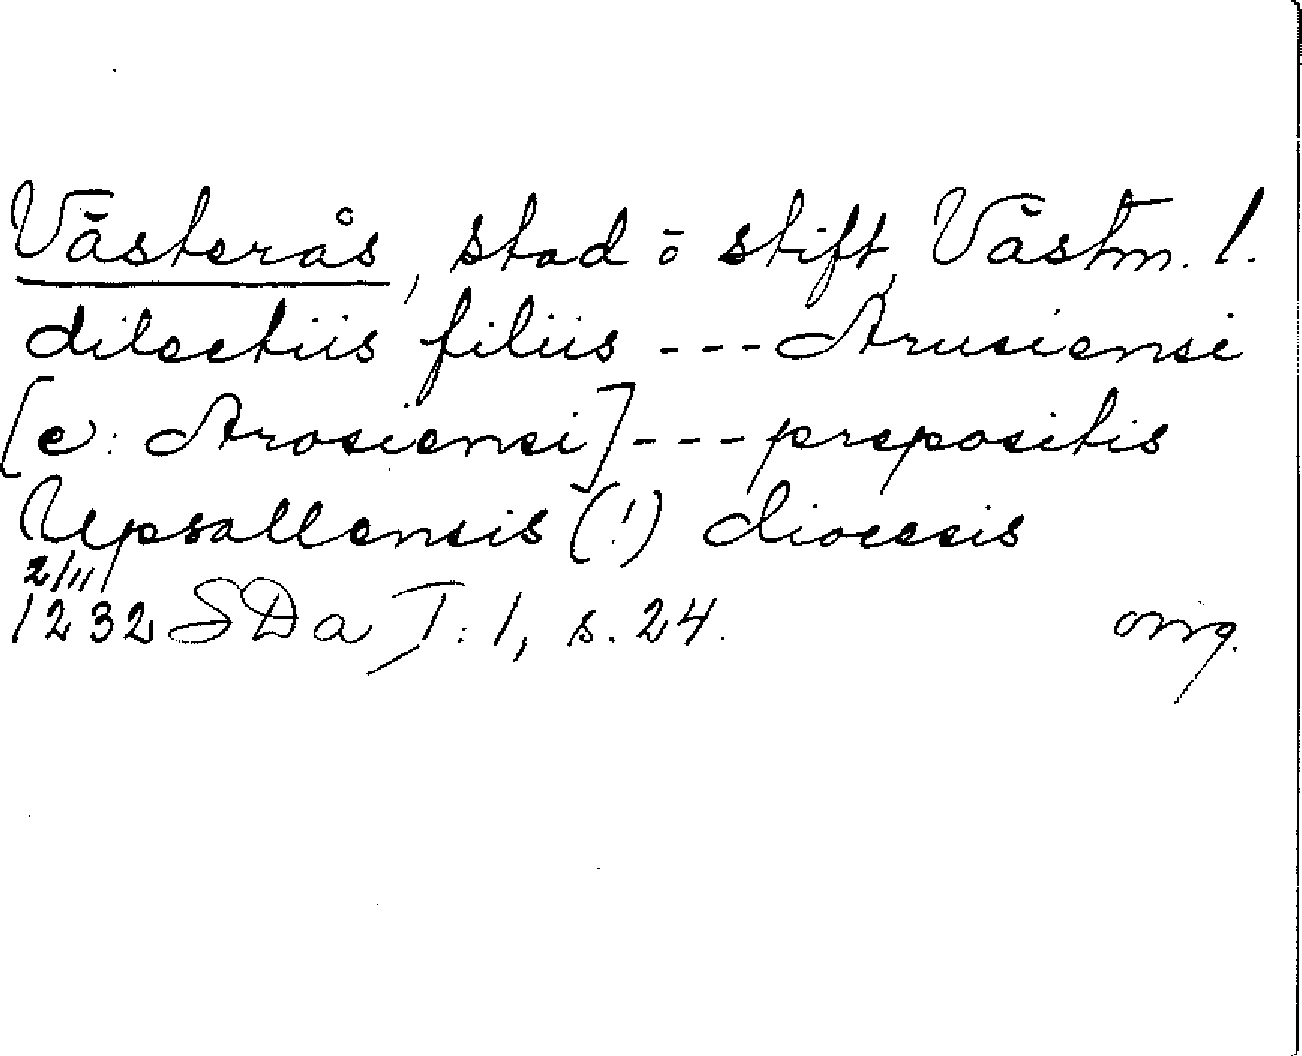 Västerås, stad ō stift, Västm. l.
dilectiis filiis --- Arusiensi
[e: Arosiensi] --- prepositis
Upsallensis (!) diocesis
2/11
1232 SDa I: 1, s. 24. orig.